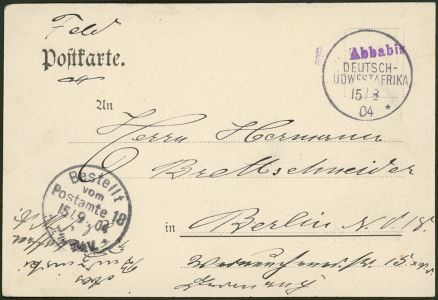 Feld
Postkarte.
Abbabis
DEUTSCH-
SÜDWESTAFRIKA
15/8
04 *
An
Herrn Hermann
Brettschneider
in Berlin N. O. 18.
15
Germany
Bestellt
vom
Postamte 18
15/9. 04